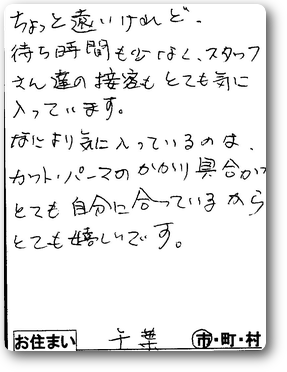 ちょっと遠いけれど、
待ち時間も少なく、スタッフ
さん達の接客もとても気に
入っています。
なにより気に入っているのは、
カット・パーマのかかり具合がで
とても自分に合っているから
とても嬉しいです。
お住まい 千葉 市・町・村